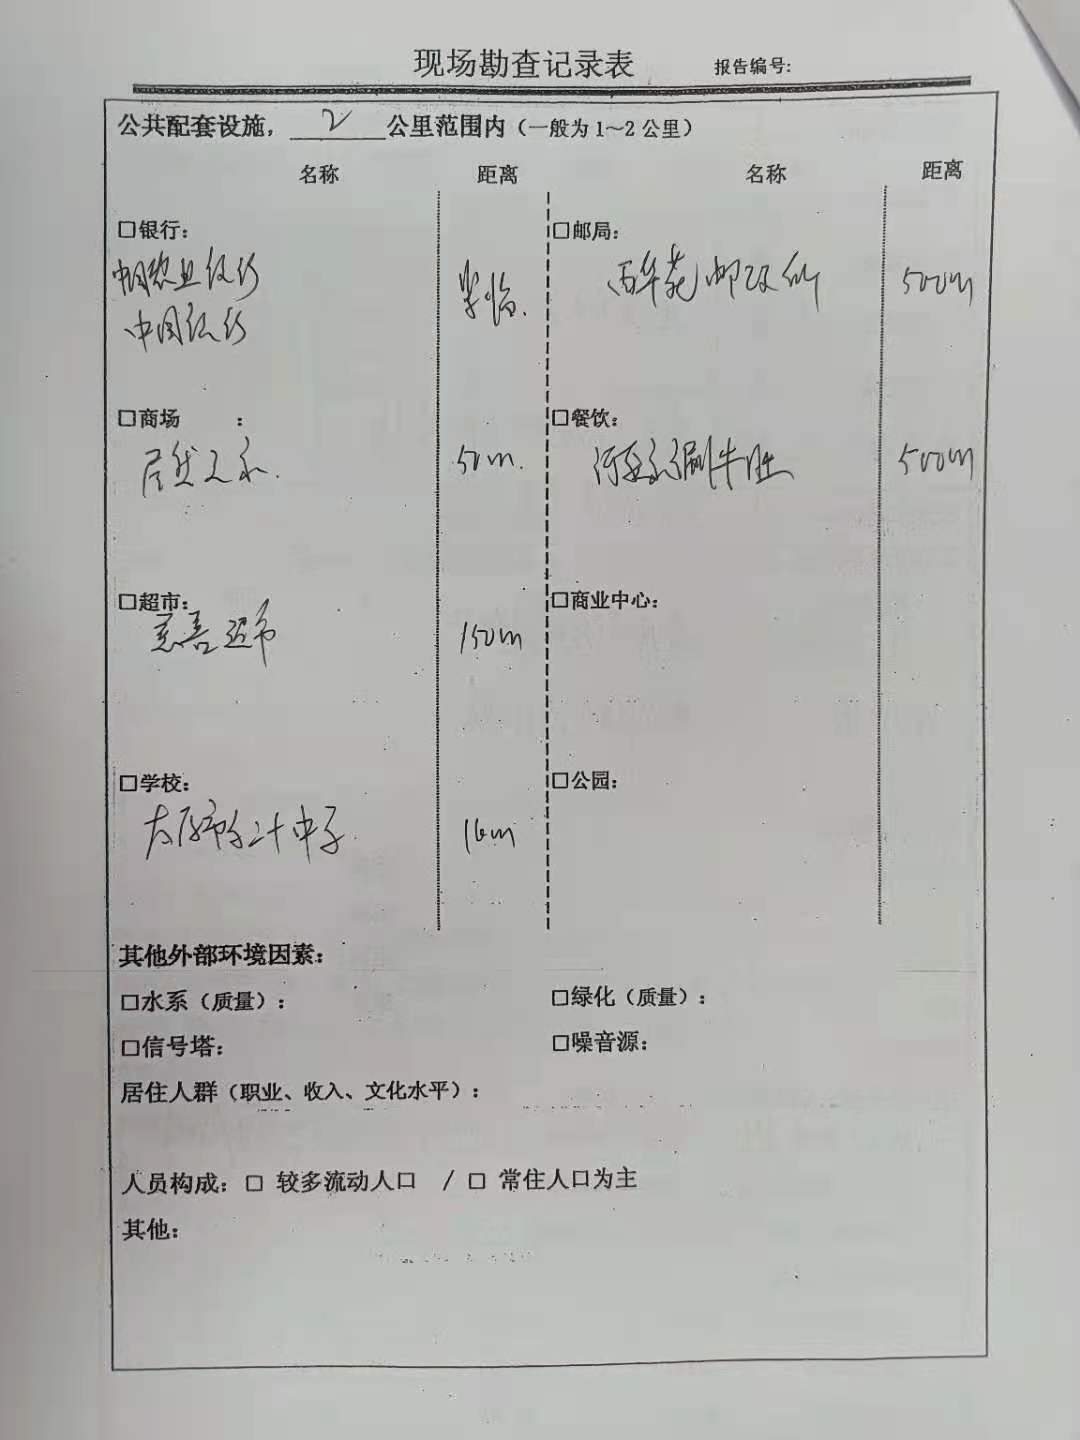 现场勘查记录表 报告编号:
公共配套设施， 2 公里范围内（一般为1～2公里）
名称 距离 名称 距离
□银行： □邮局：
中国农业银行 紧临. 百华苑邮政所 500m
中国银行
□商场 ： □餐饮：
居然之家. 50m. 涮牛肚 500m
□超市： □商业中心：
慈善超市 150m
□学校： □公园：
太原市第二十中学. 1km
其他外部环境因素：
□水系（质量）： □绿化（质量）：
□信号塔： □噪音源：
居住人群（职业、收入、文化水平）：
人员构成：□ 较多流动人口 / □ 常住人口为主
其他：